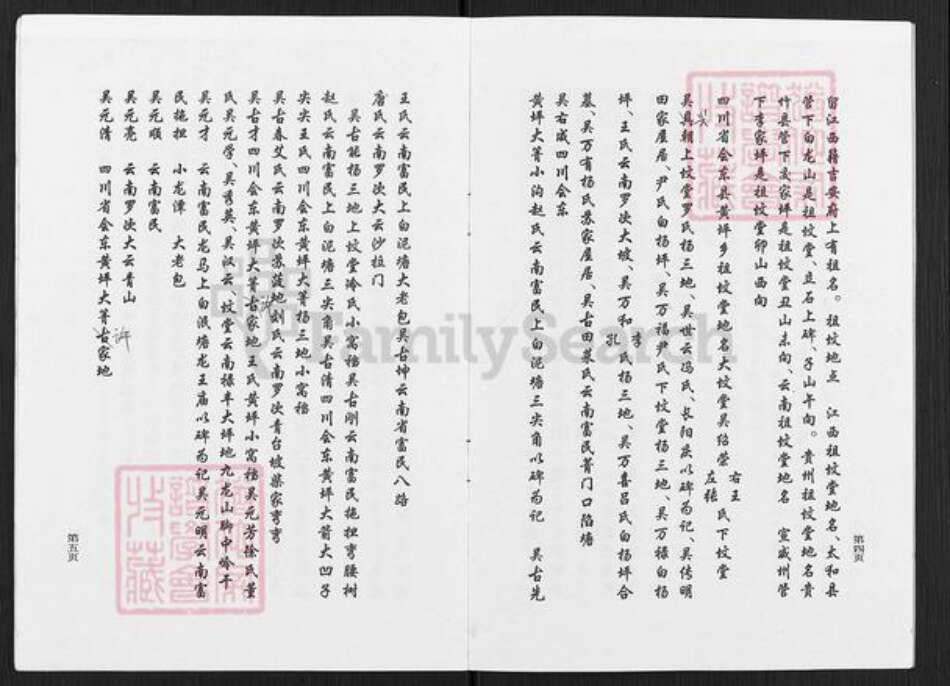 留江西籍吉安府上有祖名。祖坟地点 江西祖坟堂地名、太和县
管下白龙山是祖坟堂、立石上碑、子山午向。贵州祖坟堂地名贵
竹县管下麦家坪是祖坟堂丑山未向、云南祖坟堂地名 宣威州管
下李家坪是祖坟堂卯山酉向
四川省会东县黄坪乡祖坟堂地名大坟堂吴绍荣 右王 左张 氏下坟堂
吴真朝上坟堂罗氏杨三地、吴世云冯氏、长阳庆以碑为记、吴传明
田家屋居、尹氏白杨坪、吴万福尹氏下坟堂杨三地、吴万禄白杨
坪、王氏云南罗次大坡、吴万和 李 孔 氏杨三地、吴万喜吕氏白杨坪合
墓、吴万有杨氏苏家屋居、吴古田裴氏云南富民菁门口陷塘
吴右成四川会东
黄坪大菁小沟赵氏云南富民上白泥塘三尖角以碑为记 吴古先
第四页
王氏云南富民上白泥塘大老包吴古坤云南省富民八路
唐氏云南罗次大云沙拉门
吴古能杨三地上坟堂冷氏小窝穩吴古刚云南富民拖担弯腰树
赵氏云南富民上白泥塘三尖角吴古清四川会东黄坪大箐大凹子
尖尖王氏四川会东黄坪大菁杨三地小窝穩
吴古春艾氏云南罗次苏菠地刘氏云南罗次青台坡梁家弯弯
吴古才四川会东黄坪大菁古家地王氏黄坪小窝穩吴元芳徐氏董
氏吴元学、吴秀英、吴汉云、坟堂云南禄丰大坪地九龙山脚中岭干
吴元才 云南富民龙马上白浅塘龙王庙以碑为记吴元明云南富
民拖担 小龙潭 大老包
吴元顺 云南富民
吴元亮 云南罗次大云青山
吴元清 四川省会东黄坪大菁古家地
许
第五页
FamilySearch